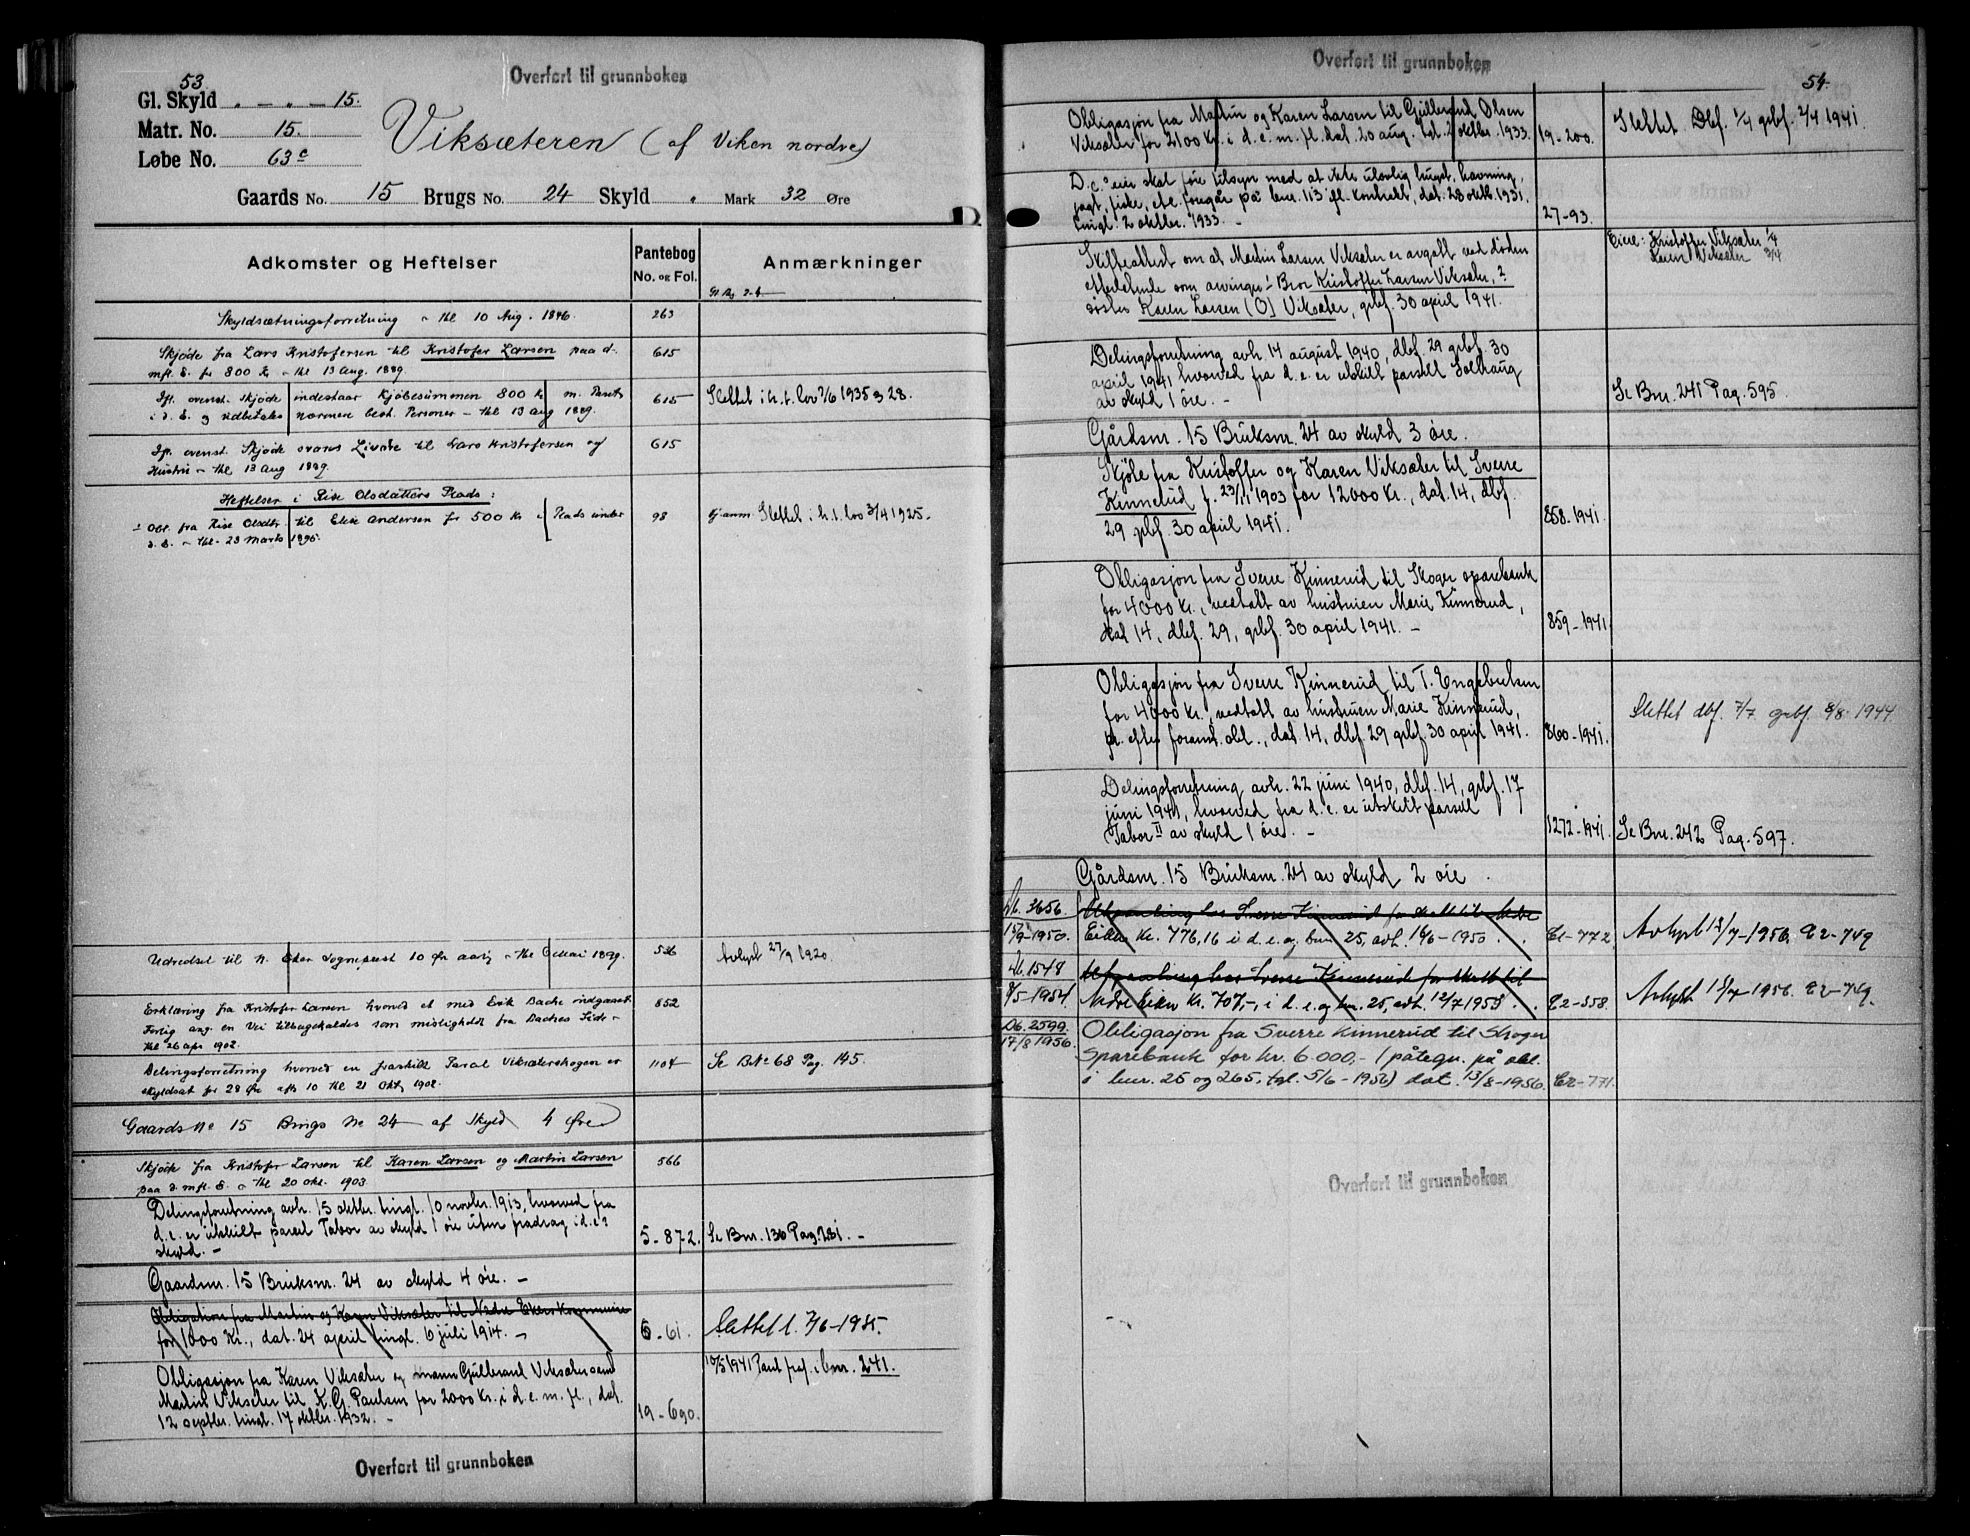 Overført til grunnboken
53
Gl. Skyld " - " - 15.
Matr. No. 15.
Løbe No. 63c
Viksæteren (af Viken nordre)
Gaards No. 15 Brugs No. 24 Skyld " Mark 32 Øre
Adkomster og Heftelser
Pantebog
No. og Fol.
Anmærkninger
Skyldsætningsforretning - thl 10 Aug. 1886. 263
Skjøde fra Lars Kristofersen til Kristofer Larsen paa d. 615
mfl. E. for 800 Kr - thl 13 Aug. 1889.
Ifl. ovenst. Skjøde indestaar Kjøbesummen 800 Kr m. Panteret 615 Slettet i h. t. lov 7/6 1935 § 28.
i d. E. og udbetales nærmere best. Personer - thl 13 aug 1889.
Ifl. ovenst. Skjøde svares Livøre til Lars Kristofersen og 615
Hustru - thl 13 Aug 1889.
Heftelser i Rise Olsdatters Plads:
Obl. fra Rise Olsdtr. til Else Andersen for 500 Kr i Plads under 98 Slettet i h. t. lov 3/4 1925.
d. E. - thl. 28 Marts 1895.
Udredsel til N. Eker Sognepræst 10 Øre aarlig - thl 6 Mai 1899. 536 Avlyst 27/9 1920.
Erklæring fra Kristofer Larsen hvorved et med Erik Bache indgaaet 852
Forlig ang. en Vei tilbagekaldes som misligholdt fra Baches Side -
thl 26 apr 1902.
Delingsforretning hvorved en fraskilt Parcel Viksæterskogen er 1104 Se B.No 68 Pag. 145.
skyldsat for 28 Øre afh 10 thl 21 Okt. 1902.
Gaards No 15 Brugs No 24 af Skyld 4 Øre
Skjøde fra Kristofer Larsen til Karen Larsen og Martin Larsen 566
paa d. mfl. E. - thl 20 okt. 1903.
Delingsforretning avh. 15 oktbr. tingl. 10 novbr. 1913, hvorved fra
d. e. er utskilt parcel Tabor av skyld 1 øre uten fradrag i d. e.s 5-872. Se Bnr. 136 Pag. 281. -
skyld. -
Gaardsnr. 15 Bruksnr. 24 av skyld 4 øre. -
Obligation fra Martin og Karen Viksæter til Nedre Ekers kommune
for 1000 Kr., dat. 24 april tingl. 6 juli 1914. - 6-61. Slettet l. 7/6-1935.
Obligasjon fra Karen Viksæter og mann Gulbrand Viksæter samt 10/5 1941 Pant fraf. i bnr. 241.
Martin Viksæter til K. G. Paulsen for 2000 Kr. i d. e. m. fl., dat.
12 septbr. tingl. 17 oktbr. 1932. - 19-690.
Overført til grunnboken
Overført til grunnboken
54.
Obligasjon fra Martin og Karen Larsen til Gulbrand Olsen
Viksæter for 2100 Kr. i d. e. m. fl. dat. 20 aug. tgl. 2 oktbr. 1933. 19-200. Slettet Dbf. 1/4 grbf. 2/4 1941.
D. e.s eier skal føre tilsyn med at ikke ulovlig hugst, havning,
jagt, fiske, etc. foregår på bnr. 113 ifl. kontrakt, dat. 28 oktb. 1931, 27-93.
tingl. 2 oktbr. 1933. -
Skifteattest om at Martin Larsen Viksæter er avgått ved døden Eiere: Kristoffer Viksæter 1/4
efterlatende som arvinger: Bror Kristoffer Larsen Viksæter, 2 Karen Viksæter 3/4
søster Karen Larsen (O) Viksæter, grbf. 30 april 1941.
Delingsforretning avh. 14 august 1940, dbf. 29 grbf. 30
april 1941 hvorved fra d. e. er utskilt parsell Solhaug Se Bnr. 241 Pag. 595.
av skyld 1 øre. -
Gårdsnr. 15 Bruksnr. 24 av skyld 3 øre.
Skjøte fra Kristoffer og Karen Viksæter til Sverre
Kinnerud f. 23/11 1903 for 12000 Kr., dat. 14, dbf. 858-1941.
29 grbf. 30 april 1941.
Obligasjon fra Sverre Kinnerud til Skoger sparebank
for 4000 Kr., vedtatt av hustruen Marie Kinnerud,
dat 14, dbf. 29, grbf. 30 april 1941. - 859-1941.
Obligasjon fra Sverre Kinnerud til T. Engebretsen
for 4000 Kr., vedtatt av hustruen Marie Kinnerud, Slettet dbf. 7/7 grbf. 8/8 1944
pr. efter foramf. obl., dat 14, dbf. 29 grbf. 30 april 1941. 860-1941.
Delingsforretning avh. 22 juni 1940, dbf. 14, grbf. 17
juni 1941, hvorved fra d. e. er utskilt parsell
Tabor II av skyld 1 øre. - 1272-1941. Se Bnr. 242 Pag. 597.
Gårdsnr. 15 Bruksnr. 24 av skyld 2 øre.
Db. 3656. Utpanting hos Sverre Kinnerud for skatt til Nedre
15/9-1950. Eiker Kr. 776,16 i d. e. og bnr. 25, avh. 16/6-1950. E1-772 Avlyst 13/7-1956. E2-749
Db. 1548 Utpanting hos Sverre Kinnerud for skatt til
8/5-1954. Nedre Eiker Kr. 707,-, i d. e. og bnr. 25, avh. 12/7 1953. E2-358. Avlyst 13/7-1956. E2-749.
Db. 2599 Obligasjon fra Sverre Kinnerud til Skoger
17/8 1956. Sparebank for kr. 6.000,- (påtegn. på obl.
i bnr. 25 og 265, tgl. 5/6-1956) dat. 13/8-1956. E2-771.
Overført til grunnboken